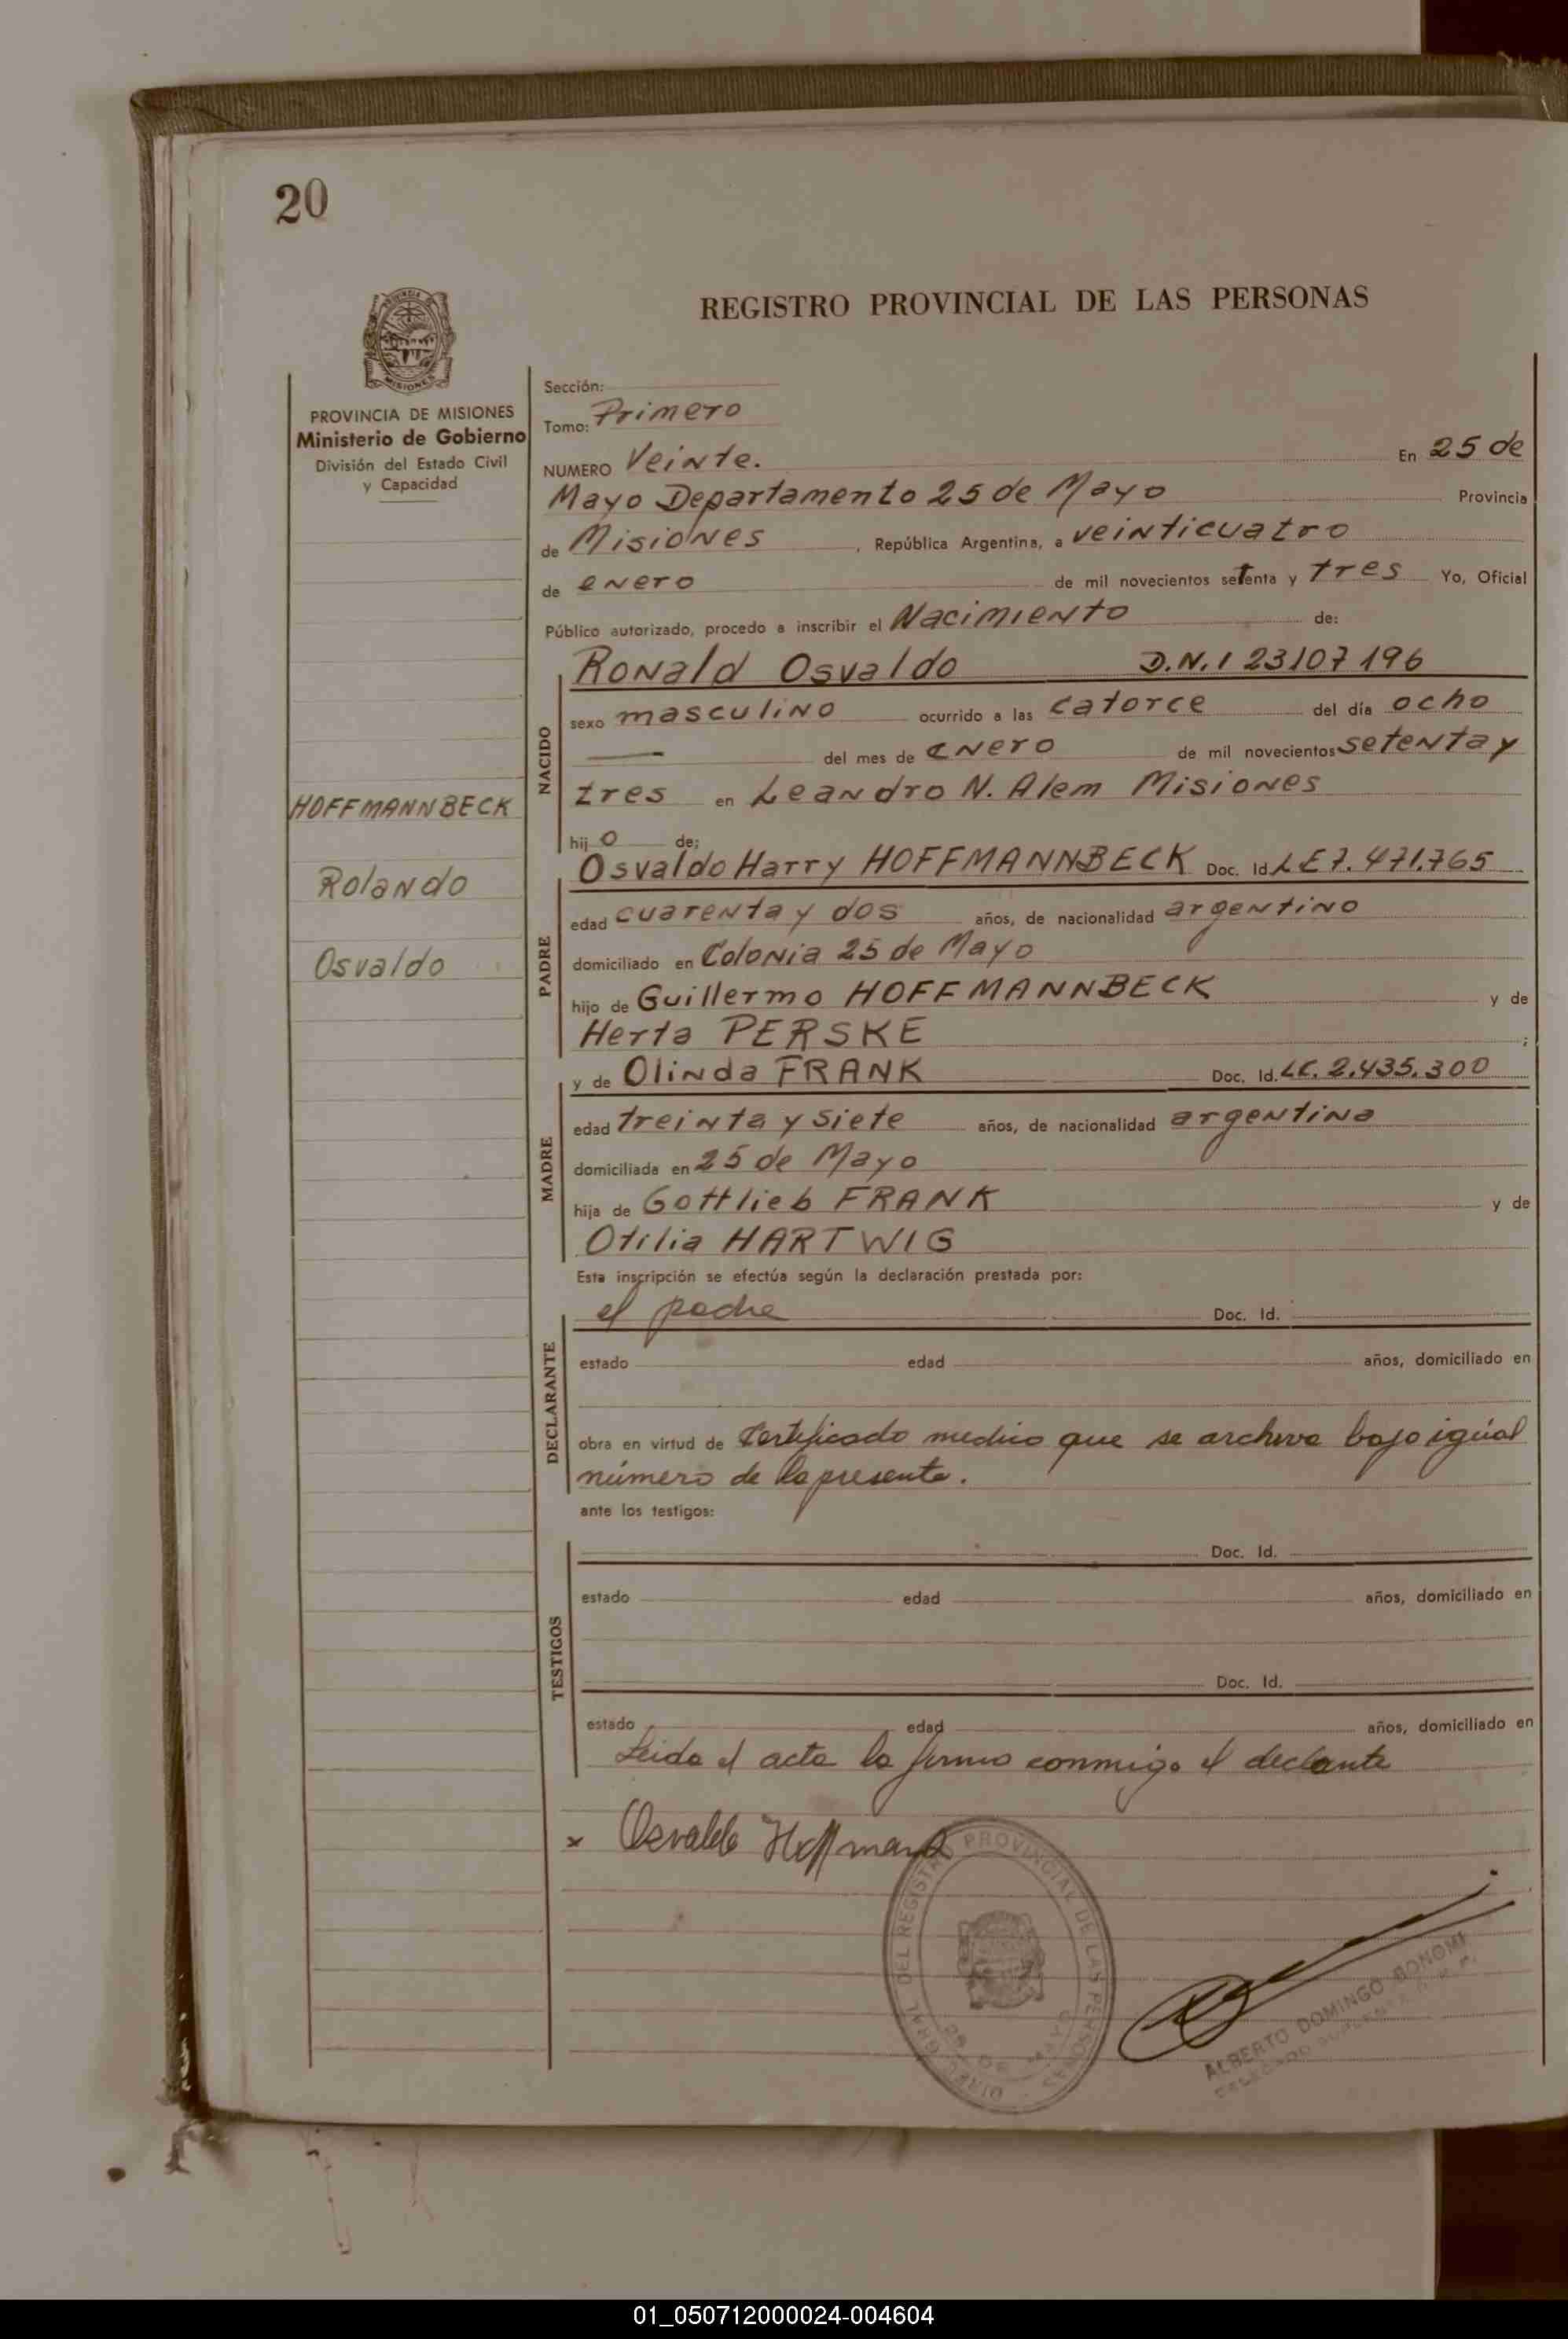 20
REGISTRO PROVINCIAL DE LAS PERSONAS
PROVINCIA DE MISIONES
Ministerio de Gobierno
División del Estado Civil
y Capacidad
HOFFMANNBECK
Rolando
Osvaldo
Sección:
Tomo: Primero
NUMERO Veinte. En 25 de
Mayo Departamento 25 de Mayo Provincia
de Misiones, República Argentina, a veinticuatro
de enero de mil novecientos setenta y tres Yo, Oficial
Público autorizado, procedo a inscribir el Nacimiento de:
NACIDO
Ronald Osvaldo D.N.I 23107196
sexo masculino ocurrido a las catorce del día ocho
— del mes de enero de mil novecientos setenta y
tres en Leandro N. Alem Misiones
hijo de:
PADRE
Osvaldo Harry HOFFMANNBECK Doc. Id. LE 7.471.765
edad cuarenta y dos años, de nacionalidad argentino
domiciliado en Colonia 25 de Mayo
hijo de Guillermo HOFFMANNBECK y de
Herta PERSKE ;
MADRE
y de Olinda FRANK Doc. Id. LC. 2.435.300
edad treinta y siete años, de nacionalidad argentina
domiciliada en 25 de Mayo
hija de Gottlieb FRANK y de
Otilia HARTWIG
Esta inscripción se efectúa según la declaración prestada por:
DECLARANTE
el padre Doc. Id.
estado edad años, domiciliado en
obra en virtud de Certificado medico que se archiva bajo igúal
número de la presente.
ante los testigos:
TESTIGOS
Doc. Id.
estado edad años, domiciliado en
Doc. Id.
estado edad años, domiciliado en
Leida el acta la firma conmigo el declante
x Osvaldo Hoffmann
DIREC. GRAL. DEL REGISTRO PROVINCIAL DE LAS PERSONAS
25 DE MAYO
ALBERTO DOMINGO BONOMI
01_050712000024-004604